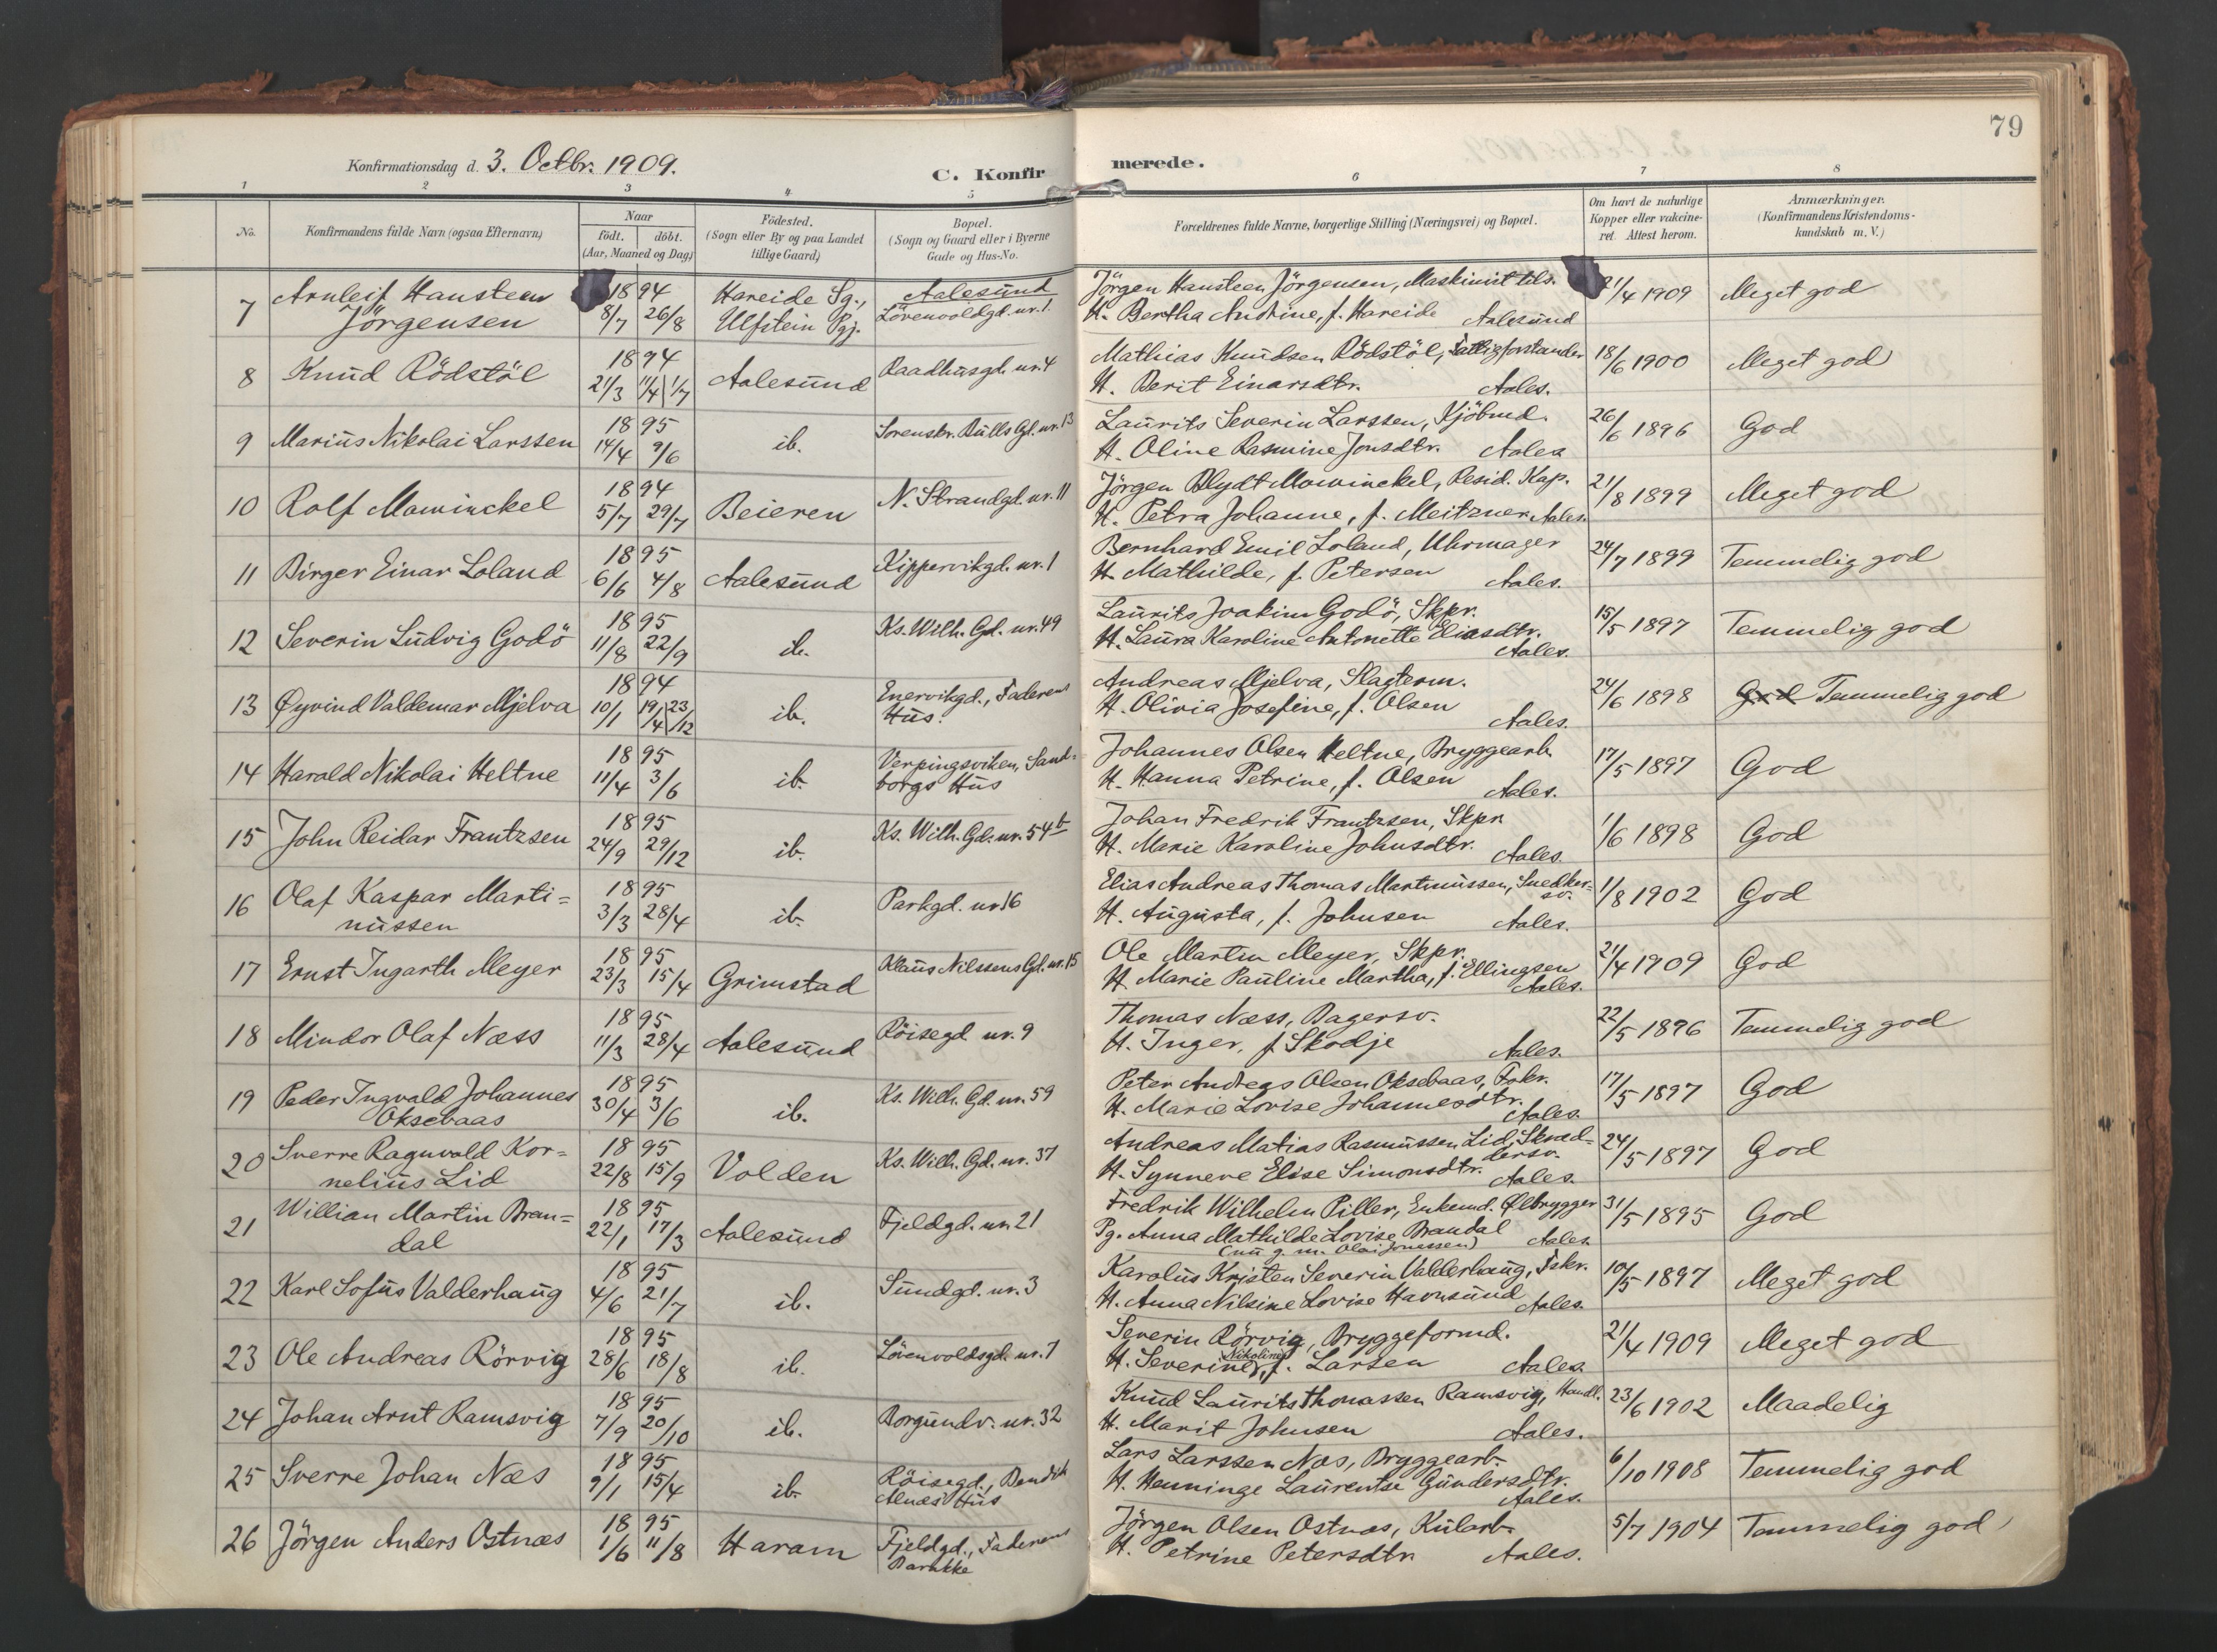 79
Konfirmationsdag d. 3. Octbr. 1909.
C. Konfirmerede.
1 2 3 4 5 6 7 8
No.
Konfirmandens fulde Navn (ogsaa Efternavn)
Naar
födt. döbt.
(Aar, Maaned og Dag)
Födested.
(Sogn eller By og paa Landet
tillige Gaard)
Bopæl.
(Sogn og Gaard eller i Byerne
Gade og Hus-No.
Forældrenes fulde Navne, borgerlige Stilling (Næringsvei) og Bopæl.
Om havt de naturlige
Kopper eller vakcine-
ret. Attest herom.
Anmærkninger.
(Konfirmandens Kristendoms-
kundskab m. V.)
7 Arnleif Hansteen 1894 Hareide Sg., Aalesund Jörgen Hansteen Jörgensen, Maskinist tils. 21/4 1909 Meget god
Jörgensen 8/7 26/8 Ulfstein Pgj. Lövenvoldgd. nr. 1. H. Bertha Andrine, f. Hareide Aalesund
8 Knud Rödstöl 1894 Aalesund Raadhusgd. nr. 4 Mathias Knudsen Rödstöl, Fattigforstander 18/6 1900 Meget god
21/3 11/4 1/7 H. Berit Einarsdtr. Aales.
9 Marius Nikolai Larssen 1895 ib. Sorenskr. Bulls Gd. nr. 13 Laurits Severin Larssen, Kjöbmd. 26/6 1896 God
14/4 9/6 H. Oline Rasmine Jonsdtr. Aales
10 Rolf Mowinckel 1894 Beieren N. Strandgd. nr. 11 Jörgen Blydt Mowinckel, Resid. Kap. 21/8 1899 Meget god
5/7 29/7 H. Petra Johanne, f. Meitzner Aales.
11 Birger Einar Loland 1895 Aalesund Kippervikgd. nr. 1 Bernhard Emil Loland, Uhrmager 24/7 1899 Temmelig god
6/6 4/8 H. Mathilde, f. Petersen Aales.
12 Severin Ludvig Godö 1895 ib. Ks. Wilh. Gd. nr. 49 Laurits Joakim Godö, Skpr. 15/5 1897 Temmelig god
11/8 22/9 H. Laura Karoline Antonette Eliasdtr. Aales.
13 Øyvind Valdemar Mjelva 1894 ib. Enervikgd., Faderens Andreas Mjelva, Slagterm. 24/6 1898 God Temmelig god
10/1 19/4 23/12 Hus. H. Olivia Josefine, f. Olsen Aales.
14 Harald Nikolai Heltne 1895 ib. Verpingsviken, Sand- Johannes Olsen Heltne, Bryggearb. 17/5 1897 God
11/4 3/6 borgs Hus H. Hanna Petrine, f. Olsen Aales.
15 John Reidar Frantzsen 1895 ib. Ks. Wilh. Gd. nr. 54 b Johan Fredrik Frantzsen, Skpr. 1/6 1898 God
24/9 29/12 H. Marie Karoline Johnsdtr. Aales.
16 Olaf Kaspar Marti= 1895 ib. Parkgd. nr 16 Elias Andreas Thomas Martinussen, Snedker= 1/8 1902 God
nussen 3/3 28/4 sv.
H. Augusta, f. Johnsen Aales.
17 Ernst Ingarth Meyer 1895 Grimstad Klaus Nilssens Gd. nr. 15 Ole Martin Meyer, Skpr. 21/4 1909 God
23/3 15/4 H. Marie Pauline Martha, f. Ellingsen Aales.
18 Mindor Olaf Næss 1895 Aalesund Röisegd nr. 9 Thomas Næss, Bagersv. 22/5 1896 Temmelig god
11/3 28/4 H. Inger, f. Skodje Aales.
19 Peder Ingvald Johannes 1895 ib. Ks. Wilh. Gd. nr. 59 Peter Andreas Olsen Oksebaas, Fskr. 17/5 1897 God
Oksebaas 30/4 3/6 H. Marie Lovise Johannesdtr. Aales.
20 Sverre Ragnvald Kor= 1895 Volden Ks. Wilh. Gd. nr. 37 Andreas Matias Rasmussen Lid, Skræd= 24/5 1897 God
nelius Lid 22/8 15/9 dersv.
H. Synneve Elise Simonsdtr. Aales.
21 Willian Martin Bran= 1895 Aalesund Fjeldgd. nr. 21 Fredrik Wilhelm Piller, Enkemd. Ølbrygger 31/5 1895 God
dal 22/1 17/3 Pg. Anna Mathilde Lovise Brandal Aales.
(nu g. m. Olai Jonassen)
22 Karl Sofus Valderhaug 1895 ib. Sundgd. nr. 3 Karolus Kristen Severin Valderhaug, Fskr. 10/5 1897 Meget god
4/6 21/7 H. Anna Nilsine Lovise Havnsund Aales.
23 Ole Andreas Rörvig 1895 ib. Lövenvoldsgd. nr. 7 Severin Rörvig, Bryggeformd. 21/4 1909 Meget god
28/6 18/8 H. Severine Nikoline, f. Larsen Aales.
24 Johan Arnt Ramsvig 1895 ib. Borgundv. nr. 32 Knud Laurits Thomassen Ramsvig, Handl. 23/6 1902 Maadelig
7/9 20/10 H. Marit Johnsen Aales.
25 Sverre Johan Næs 1895 ib. Röisegd., Bendik Lars Larssen Næs, Bryggearb. 6/10 1908 Temmelig god
9/1 15/4 Alnæs' Hus H. Henninge Laurentse Gundersdtr. Aales.
26 Jörgen Anders Ostnæs 1895 Haram Fjeldgd., Faderens Jörgen Olsen Ostnæs, Kularb. 5/7 1904 Temmelig god
1/6 11/8 Barakke H. Petrine Petersdtr. Aales.